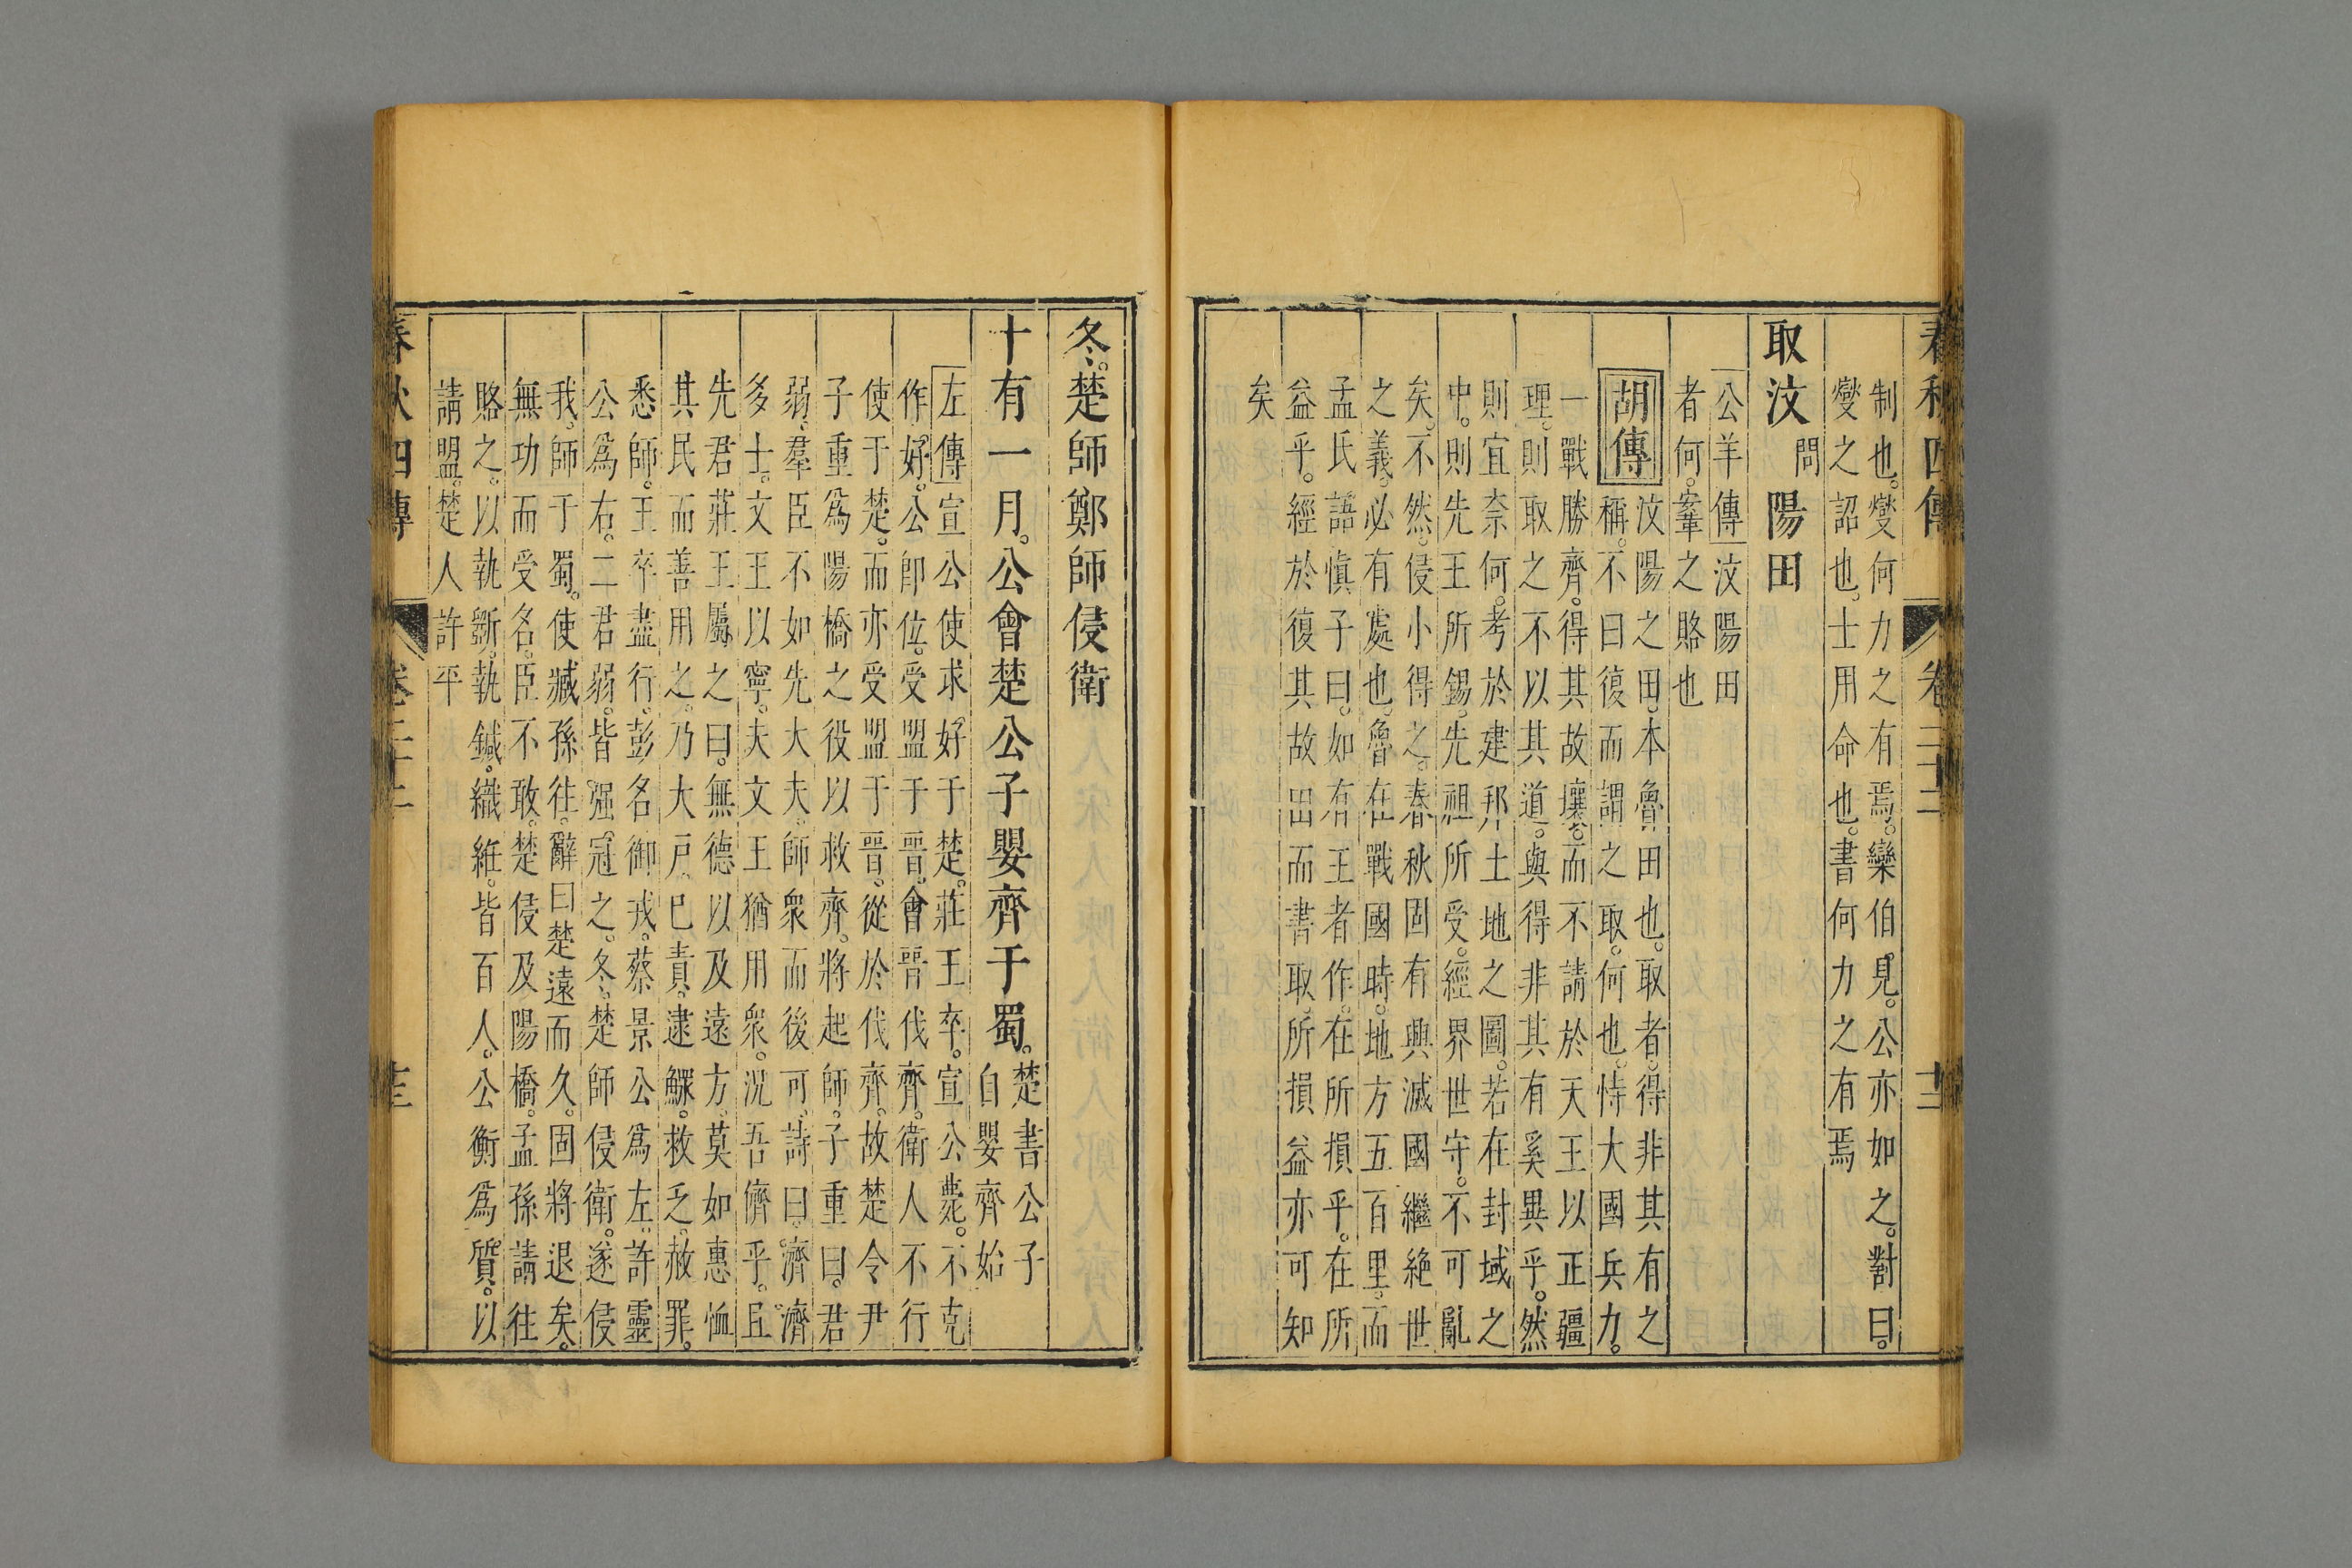 春秋四傳 卷二十二 十二
制也。燮何力之有焉。欒伯見。公亦如之。對曰。
燮之詔也。士用命也。書何力之有焉
取汶問陽田
公羊傳汶陽田
者何。鞌之賂也
胡傳
汶陽之田。本魯田也。取者。得非其有之
稱。不曰復而謂之取。何也。恃大國兵力。
一戰勝齊。得其故壤。而不請於天王以正疆
理。則取之不以其道。與得非其有奚異乎。然
則宜奈何。考於建邦土地之圖。若在封域之
中。則先王所錫。先祖所受。經界世守。不可亂
矣。不然。侵小得之。春秋固有興滅國繼絕世
之義。必有處也。魯在戰國時。地方五百里。而
孟氏語慎子曰。如有王者作。在所損乎。在所
益乎。經於復其故田而書取。所損益亦可知
矣
冬。楚師鄭師侵衛
十有一月。公會楚公子嬰齊于蜀。楚書公子
自嬰齊始
左傳宣公使求好于楚。莊王卒。宣公薨。不克
作好。公卽位。受盟于晉。會晉伐齊。衛人不行
使于楚。而亦受盟于晉。從於伐齊。故楚令尹
子重爲陽橋之役以救齊。將起師。子重曰。君
弱。羣臣不如先大夫。師衆而後可。詩曰。濟濟
多士。文王以寧。夫文王猶用衆。況吾儕乎。且
先君莊王屬之曰。無德以及遠方。莫如惠恤
其民而善用之。乃大戸巳責。逮鰥。救乏。赦罪。
悉師。王卒盡行。彭名御戎。蔡景公爲左。許靈
公爲右。二君弱。皆强冠之。冬。楚師侵衛。遂侵
我。師于蜀。使臧孫往。辭曰楚遠而久。固將退矣。
無功而受名。臣不敢。楚侵及陽橋。孟孫請往
賂之。以執斲。執鍼。織維。皆百人。公衡爲質。以
請盟。楚人許平
春秋四傳 卷二十二 十三